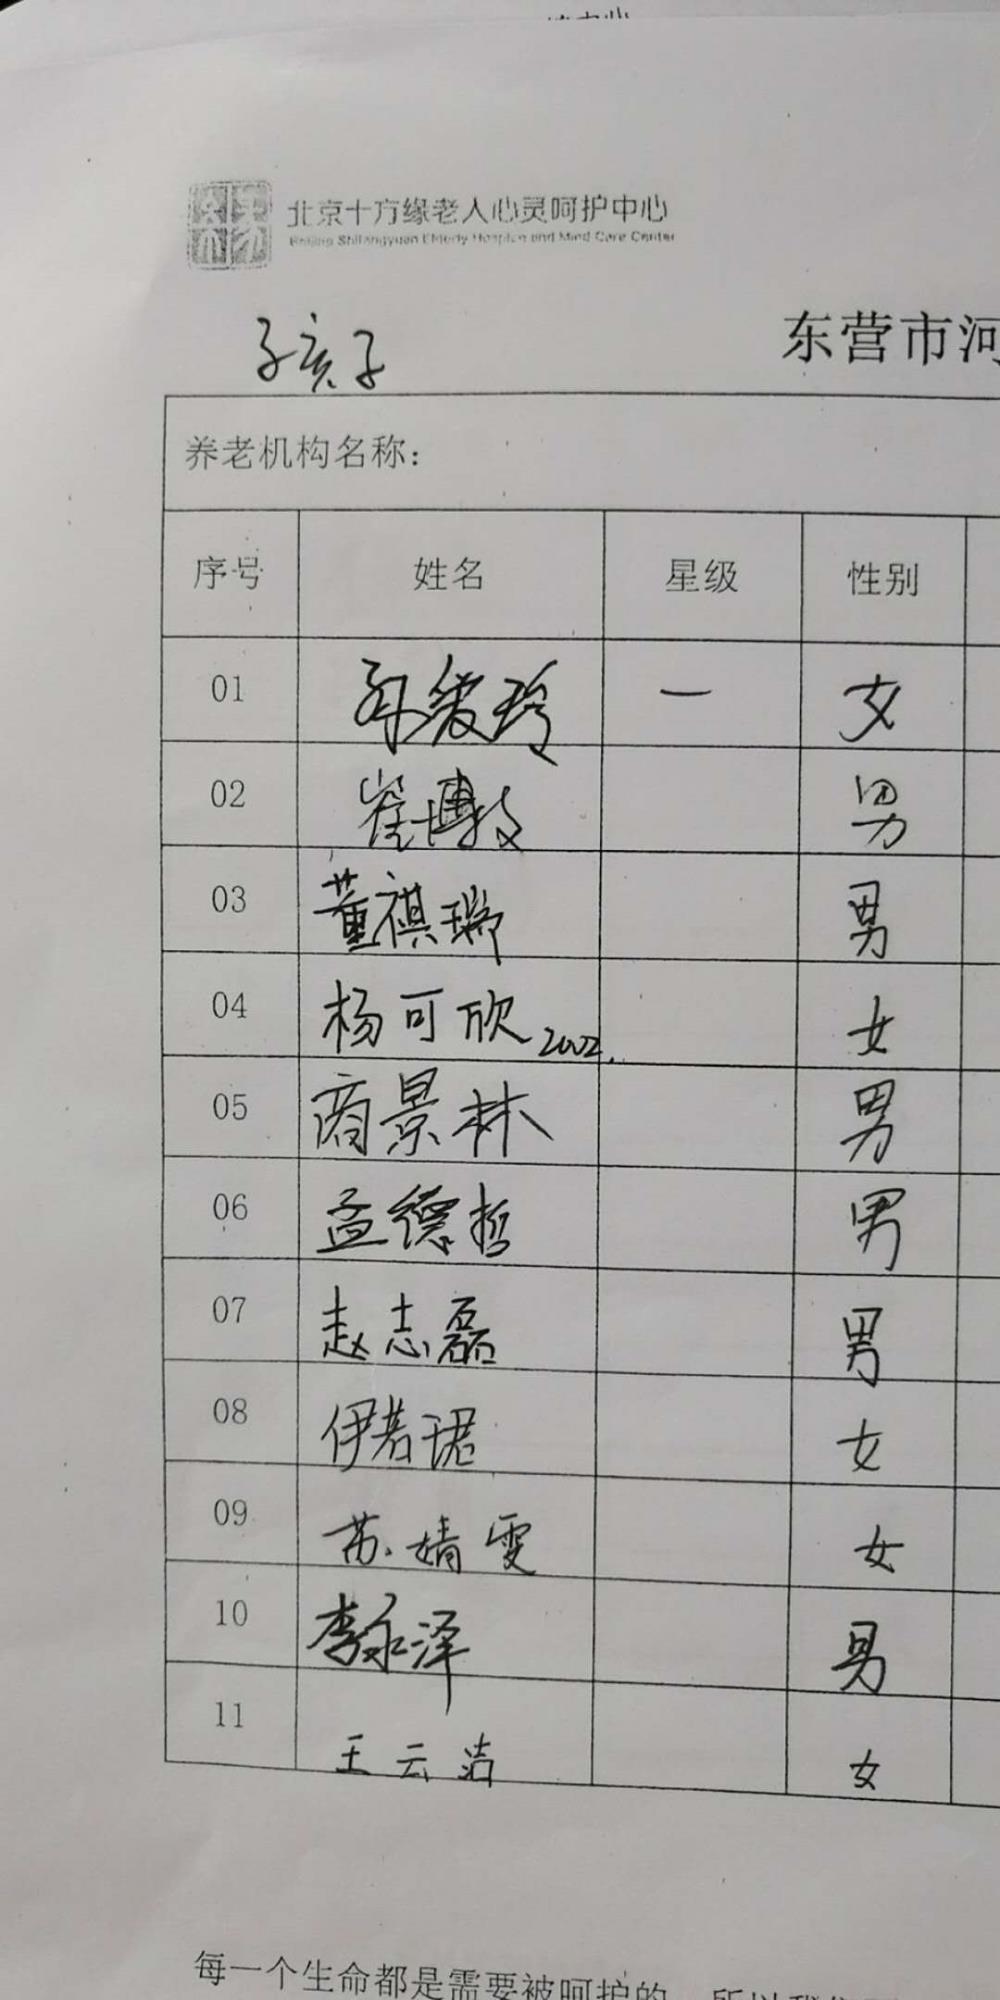 北京十方缘老人心灵呵护中心
Beijing Shifangyuan Elderly Hospice and Mind Care Center
孑亥子
东营市河
养老机构名称：
序号 姓名 星级 性别
01 孙爱玲 一 女
02 崔博文 男
03 董祺瑞 男
04 杨可欣2002. 女
05 商景林 男
06 孟德哲 男
07 赵志磊 男
08 伊若珺 女
09 苏婧雯 女
10 李永泽 男
11 王云洁 女
每一个生命都是需要被呵护的